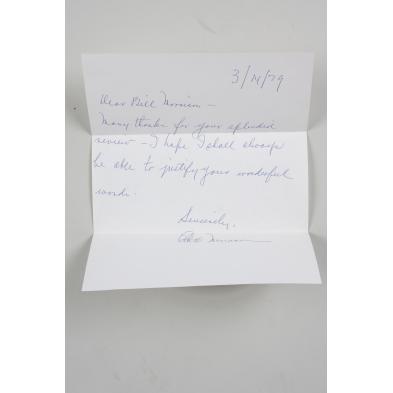 3/14/79
Dear Bill Morrison –
Many thanks for your splendid
review – I hope I shall always
be able to justify your wonderful
words.
Sincerely,